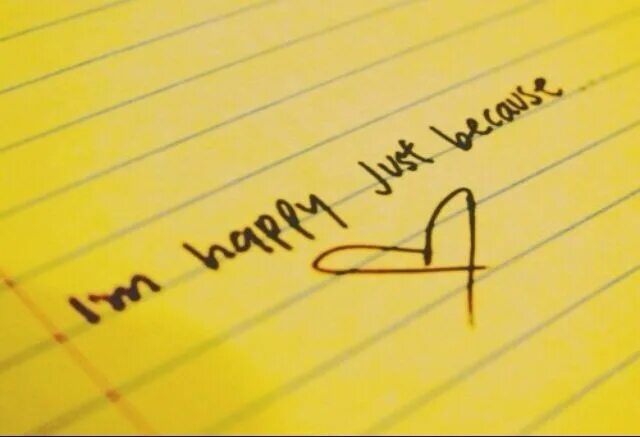 I'm happy Just because...